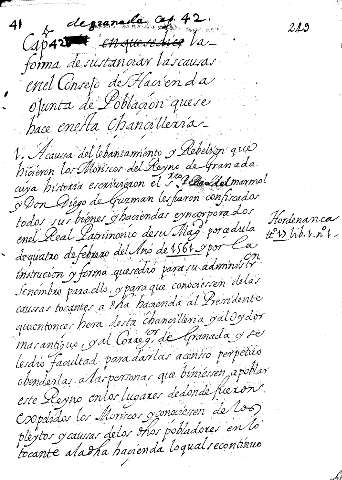 41
de granada cap. 42.
219
Cap 42 en que se dice la
forma de sustanciar las causas
en el Consejo de Hacienda
o Junta de Poblacion que se
hace en esta Chancilleria
1. A causa del lebantamiento y Rebelion que
hicieron los Moriscos del Reyno de Granada
cuya historia escrivieron el del marmol
y Don Diego de Guzman les fueron confiscados
todos sus bienes y haciendas e yncorporados
en el Real Patrimonio de su Mag.d por cedula
de quatro de febrero del Año de 1561 y por la
Hordenanca
lib. 1. n.º 1.
instrucion y forma que se dio para su administr.on
se nombro para ello, y para que conociesen de las
causas tocantes a dha hacienda al Presidente
que entonces hera desta chancilleria y al oydor
mas antiguo, y al Correg.or de Granada y se
les dio facultad para darlas a censo perpetuo
o benderlas a las personas que biniesen a poblar
este Reyno en los lugares de donde fueron
expelidos los Moriscos y conociesen de los
pleytos y causas de los dhos pobladores en lo
tocante a la dha hacienda lo qual se continuo